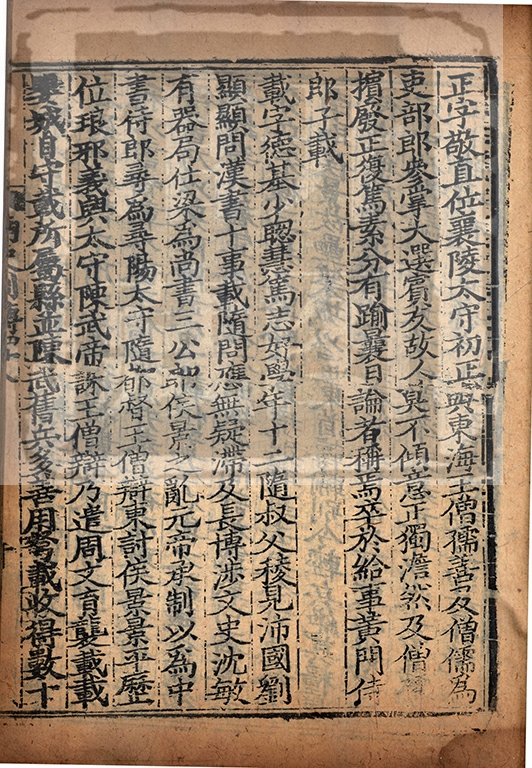 正字敬直位襄陵太守初正與東海王僧儒善及僧儒為
吏部郎參掌大選賓友故人莫不傾意正獨澹然及僧
擯廢正復篤素分有踰襄日論者稱焉卒於給事黃門侍
郎子載
載字德基少聰慧篤志好學年十二隨叔父稜見沛國劉
顯顯問漢書十事載隨問應無疑滯及長博涉文史沈敏
有器局仕梁為尚書三公郎侯景之亂元帝承制以為中
書侍郎尋為尋陽太守隨都督王僧辯東討侯景景平歷
位琅邪義興太守陳武帝誅王僧辯乃遣周文育襲載載
嬰城自守載所屬縣並陳武舊兵多善用弩載收得數十